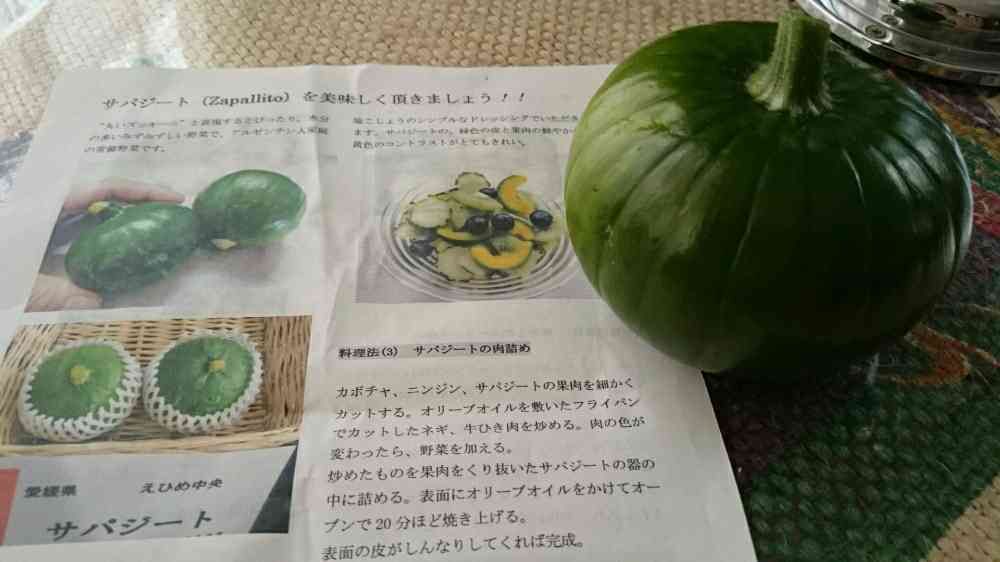 サパジート（Zapallito）を美味しく頂きましょう！！
"丸いズッキーニ"と表現するとぴったり。水分
の多いみずみずしい野菜で、アルゼンチン人家庭
の常備野菜です。
塩こしょうのシンプルなドレッシングでいただき
ます。サパジートの、緑色の皮と果肉の鮮やか
黄色のコントラストがとてもきれい。
料理法(3) サパジートの肉詰め
カボチャ、ニンジン、サパジートの果肉を細かく
カットする。オリーブオイルを敷いたフライパン
でカットしたネギ、牛ひき肉を炒める。肉の色が
変わったら、野菜を加える。
炒めたものを果肉をくり抜いたサパジートの器の
中に詰める。表面にオリーブオイルをかけてオー
ブンで20分ほど焼き上げる。
表面の皮がしんなりしてくれば完成。
愛媛県 えひめ中央
サパジート